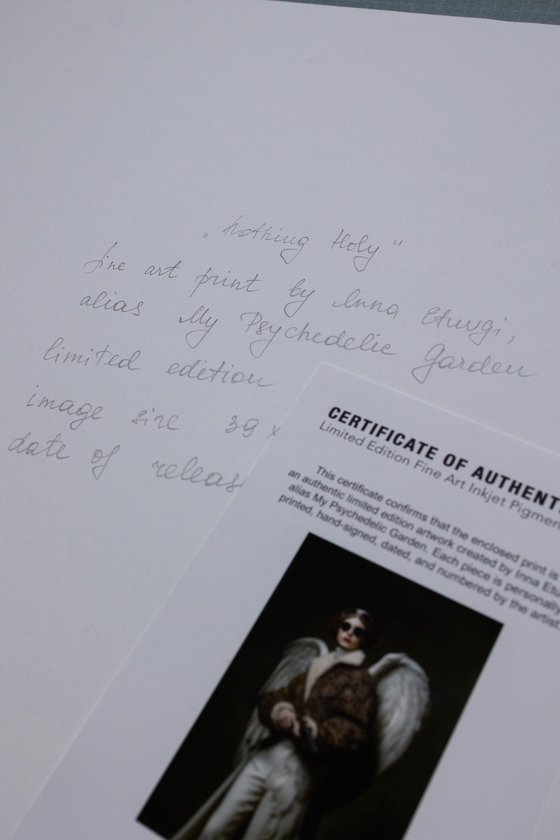 „Nothing Holy"
fine art print by Inna Etuvgi,
alias My Psychedelic Garden
limited edition
image size 39 x
date of releas
CERTIFICATE OF AUTHENT
Limited Edition Fine Art Inkjet Pigmen
This certificate confirms that the enclosed print is
an authentic limited edition artwork created by Inna Etu
alias My Psychedelic Garden. Each piece is personally
printed, hand-signed, dated, and numbered by the artist.